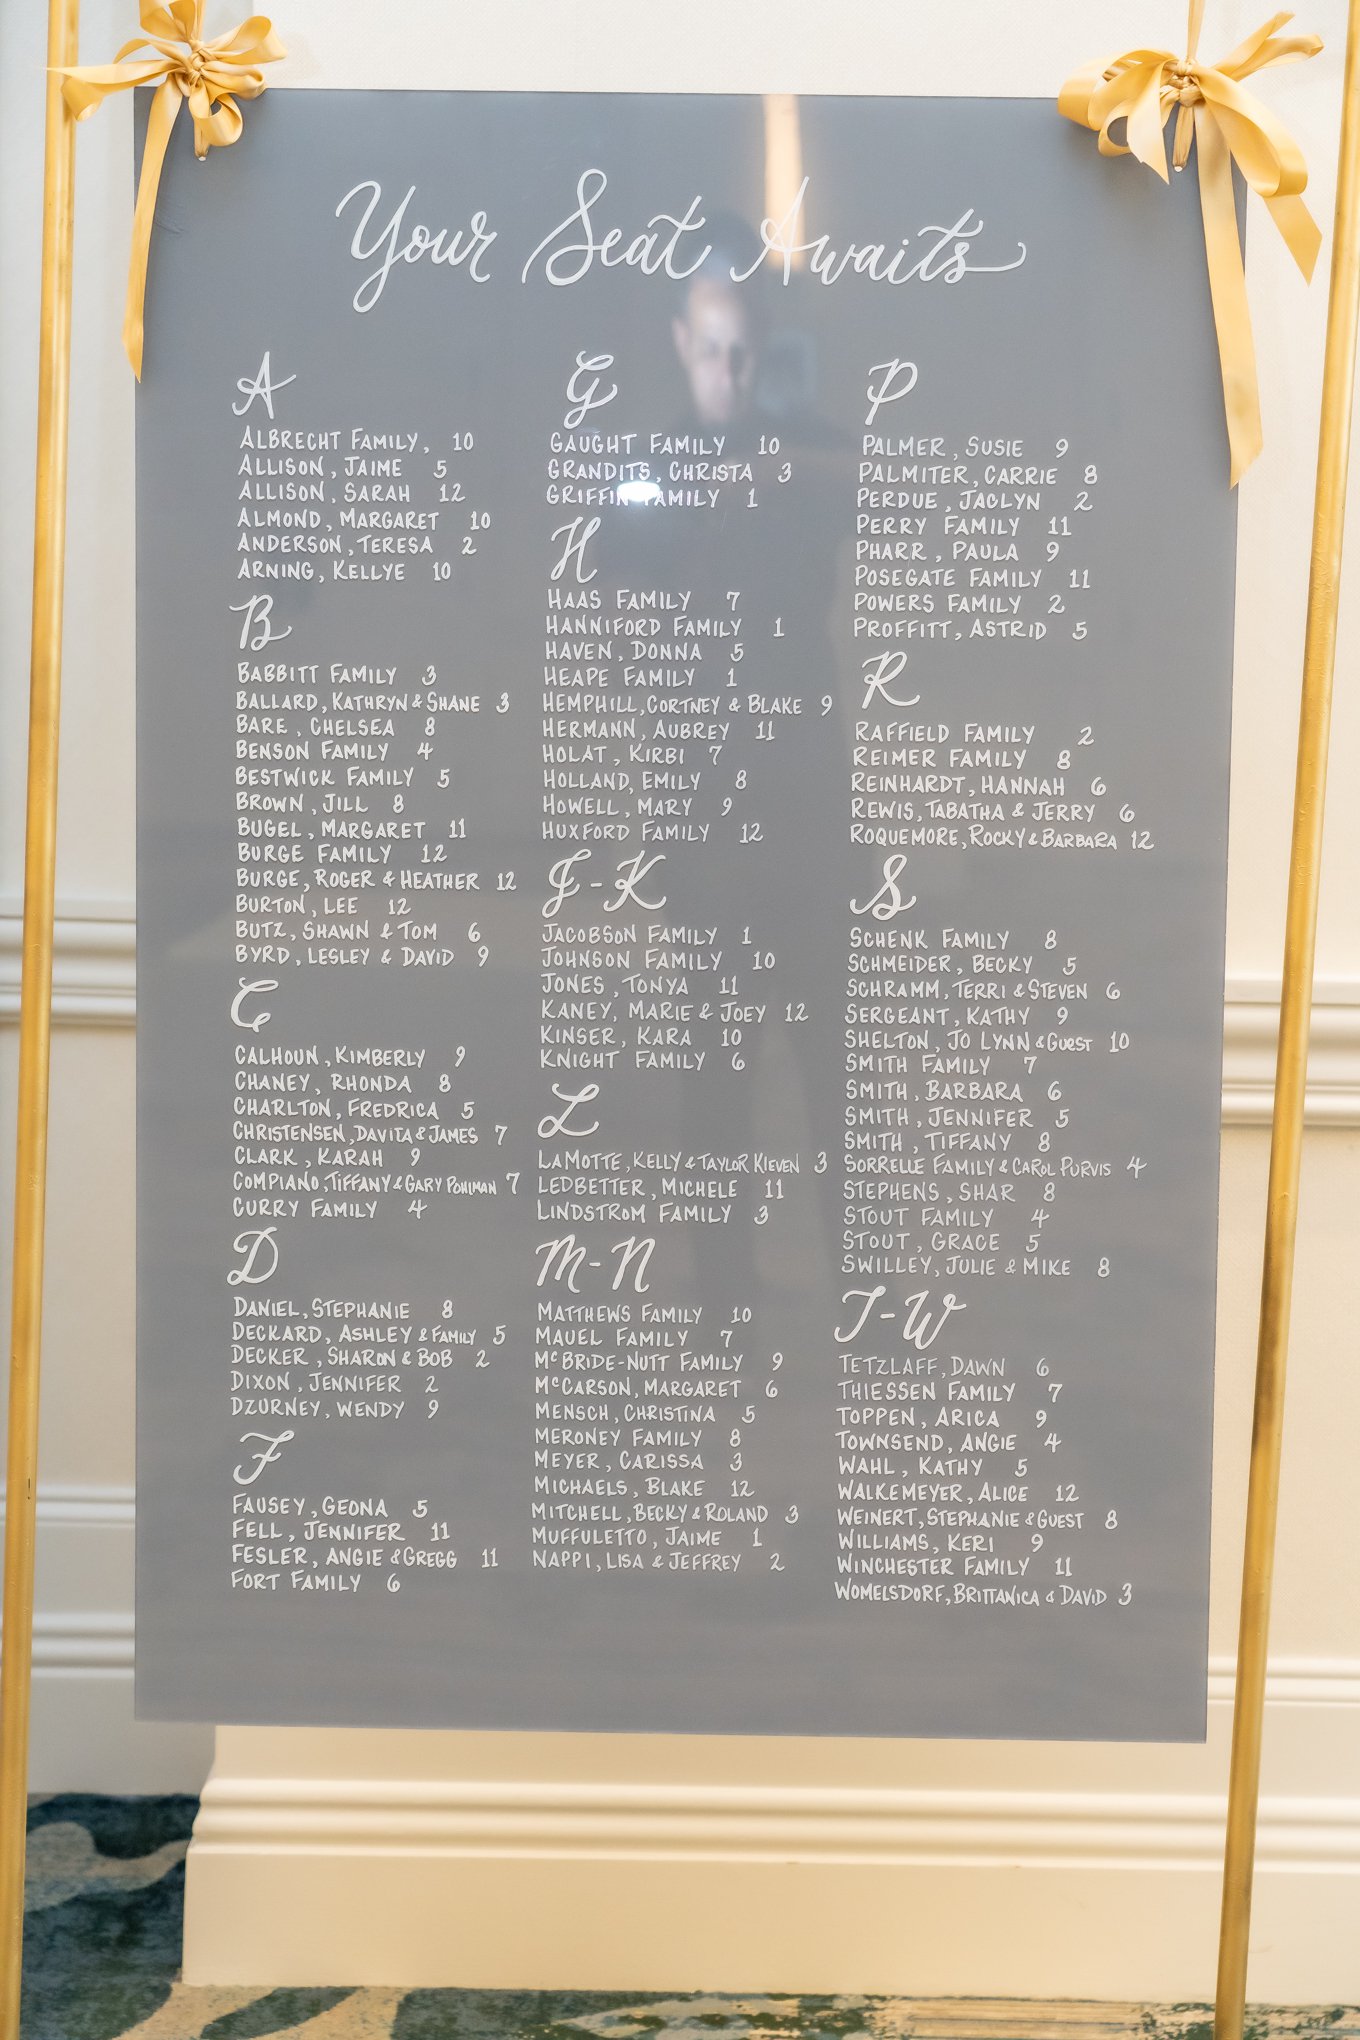 Your Seat Awaits
A
ALBRECHT FAMILY, 10
ALLISON, JAIME 5
ALLISON, SARAH 12
ALMOND, MARGARET 10
ANDERSON, TERESA 2
ARNING, KELLYE 10
B
BABBITT FAMILY 3
BALLARD, KATHRYN & SHANE 3
BARE, CHELSEA 8
BENSON FAMILY 4
BESTWICK FAMILY 5
BROWN, JILL 8
BUGEL, MARGARET 11
BURGE FAMILY 12
BURGE, ROGER & HEATHER 12
BURTON, LEE 12
BUTZ, SHAWN & TOM 6
BYRD, LESLEY & DAVID 9
C
CALHOUN, KIMBERLY 9
CHANEY, RHONDA 8
CHARLTON, FREDRICA 5
CHRISTENSEN, DAVITA & JAMES 7
CLARK, KARAH 9
COMPIANO, TIFFANY & GARY POHLMAN 7
CURRY FAMILY 4
D
DANIEL, STEPHANIE 8
DECKARD, ASHLEY & FAMILY 5
DECKER, SHARON & BOB 2
DIXON, JENNIFER 2
DZURNEY, WENDY 9
F
FAUSEY, GEONA 5
FELL, JENNIFER 11
FESLER, ANGIE & GREGG 11
FORT FAMILY 6
G
GAUGHT FAMILY 10
GRANDITS, CHRISTA 3
GRIFFIN FAMILY 1
H
HAAS FAMILY 7
HANNIFORD FAMILY 1
HAVEN, DONNA 5
HEAPE FAMILY 1
HEMPHILL, CORTNEY & BLAKE 9
HERMANN, AUBREY 11
HOLAT, KIRBI 7
HOLLAND, EMILY 8
HOWELL, MARY 9
HUXFORD FAMILY 12
J-K
JACOBSON FAMILY 1
JOHNSON FAMILY 10
JONES, TONYA 11
KANEY, MARIE & JOEY 12
KINSER, KARA 10
KNIGHT FAMILY 6
L
LAMOTTE, KELLY & TAYLOR KIEVEN 3
LEDBETTER, MICHELE 11
LINDSTROM FAMILY 3
M-N
MATTHEWS FAMILY 10
MAUEL FAMILY 7
McBRIDE-NUTT FAMILY 9
McCARSON, MARGARET 6
MENSCH, CHRISTINA 5
MERONEY FAMILY 8
MEYER, CARISSA 3
MICHAELS, BLAKE 12
MITCHELL, BECKY & ROLAND 3
MUFFULETTO, JAIME 1
NAPPI, LISA & JEFFREY 2
P
PALMER, SUSIE 9
PALMITER, CARRIE 8
PERDUE, JACLYN 2
PERRY FAMILY 11
PHARR, PAULA 9
POSEGATE FAMILY 11
POWERS FAMILY 2
PROFFITT, ASTRID 5
R
RAFFIELD FAMILY 2
REIMER FAMILY 8
REINHARDT, HANNAH 6
REWIS, TABATHA & JERRY 6
ROQUEMORE, ROCKY & BARBARA 12
S
SCHENK FAMILY 8
SCHMEIDER, BECKY 5
SCHRAMM, TERRI & STEVEN 6
SERGEANT, KATHY 9
SHELTON, JO LYNN & GUEST 10
SMITH FAMILY 7
SMITH, BARBARA 6
SMITH, JENNIFER 5
SMITH, TIFFANY 8
SORRELLE FAMILY & CAROL PURVIS 4
STEPHENS, SHAR 8
STOUT FAMILY 4
STOUT, GRACE 5
SWILLEY, JULIE & MIKE 8
T-W
TETZLAFF, DAWN 6
THIESSEN FAMILY 7
TOPPEN, ARICA 9
TOWNSEND, ANGIE 4
WAHL, KATHY 5
WALKEMEYER, ALICE 12
WEINERT, STEPHANIE & GUEST 8
WILLIAMS, KERI 9
WINCHESTER FAMILY 11
WOMELSDORF, BRITTANICA & DAVID 3